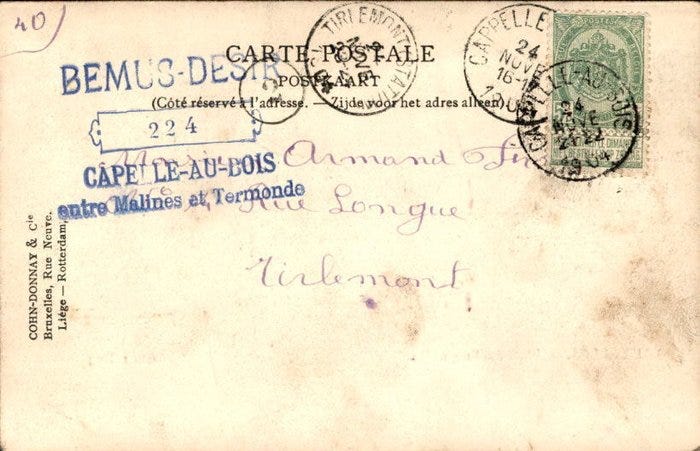 40
CARTE POSTALE
POSTKAART
(Côté réservé à l'adresse. — Zijde voor het adres alleen)
BEMUS-DESIR
224
CAPELLE-AU-BOIS
entre Malines et Termonde
2
TIRLEMONT (STATION)
CAPPELLE
24
NOVE
16-
CAPPELLE-AU-BOIS
24
NOVE
1904
POSTES
Armand
Rue Longue
Tirlemont
COHN-DONNAY & Cie
Bruxelles, Rue Neuve.
Liége — Rotterdam,